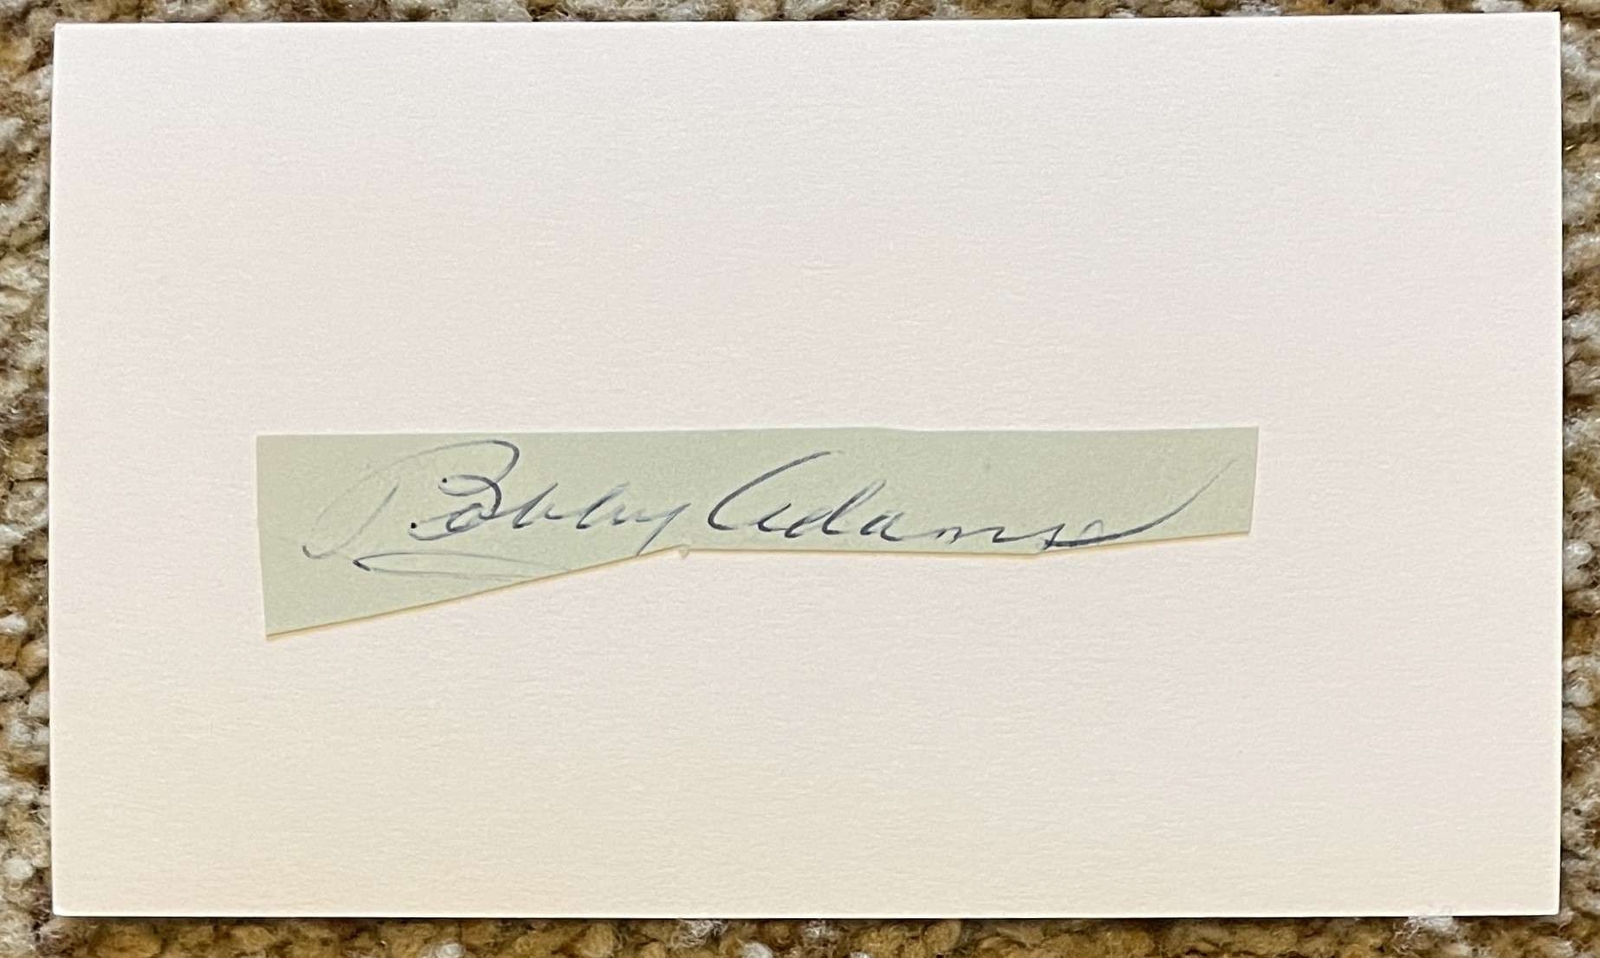 Bobby Adams